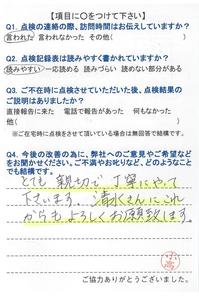 【項目に○をつけて下さい】
Q1. 点検の連絡の際、訪問時間はお伝えしていますか?
言われた 言われなかった その他(
)
Q2. 点検記録表は読みやすく書かれていますか?
読みやすい 一応読める 読みづらい 読めない部分がある
Q3. ご不在時に点検させていただいた後、点検結果の
ご説明はありましたか?
直接報告に来た 電話で報告があった 何もなかった
他( )
※ご在宅時に点検をさせて頂いている場合は無回答で結構です。
Q4. 今後の改善の為に、弊社へのご意見やご希望などを
お聞かせください。ご不満やお叱りなど、どのようなこと
でも結構です。
とても親切で丁寧にやって
下さいます。清水さんにこれ
からもよろしくお願い致します。
ご協力ありがとうございました。